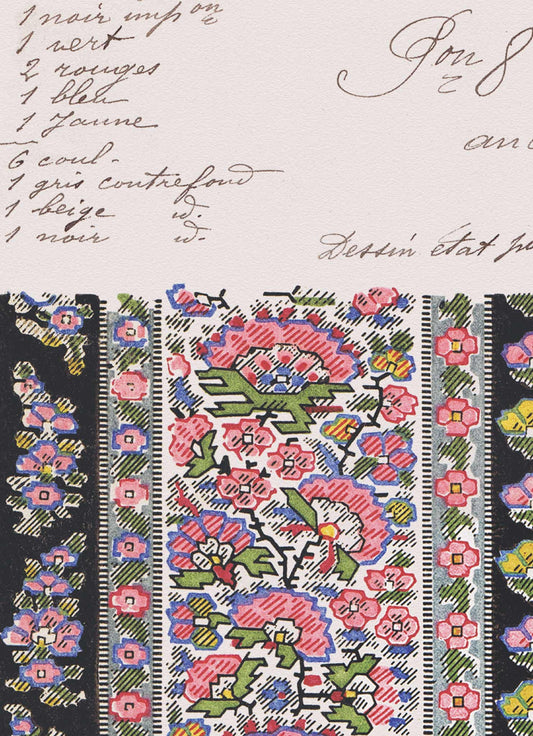 1 noir imp on
1 vert
2 rouges
1 bleu
1 Jaune
6 coul.
1 gris contrefond
1 beige id.
1 noir id.
Pon 8
Dessin état